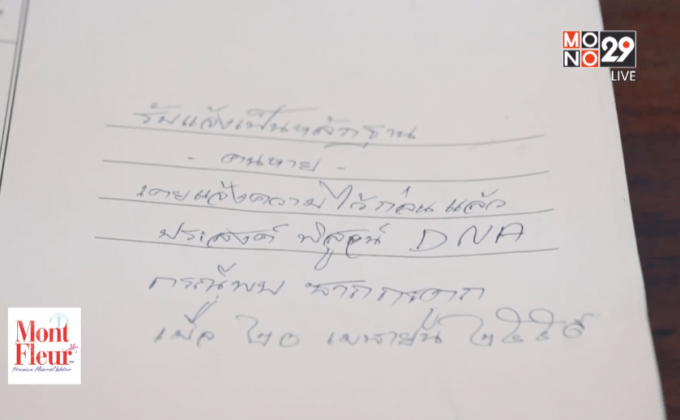 MONO 29
LIVE
รับแจ้งเป็นหลักฐาน
- คนหาย -
เคยแจ้งความไว้ก่อนแล้ว
ประสงค์ พิสูจน์ DNA
กรณีพบ ซากกระดูก
เมื่อ ๒๐ เมษายน
Mont
Fleur
Premium Mineral Water